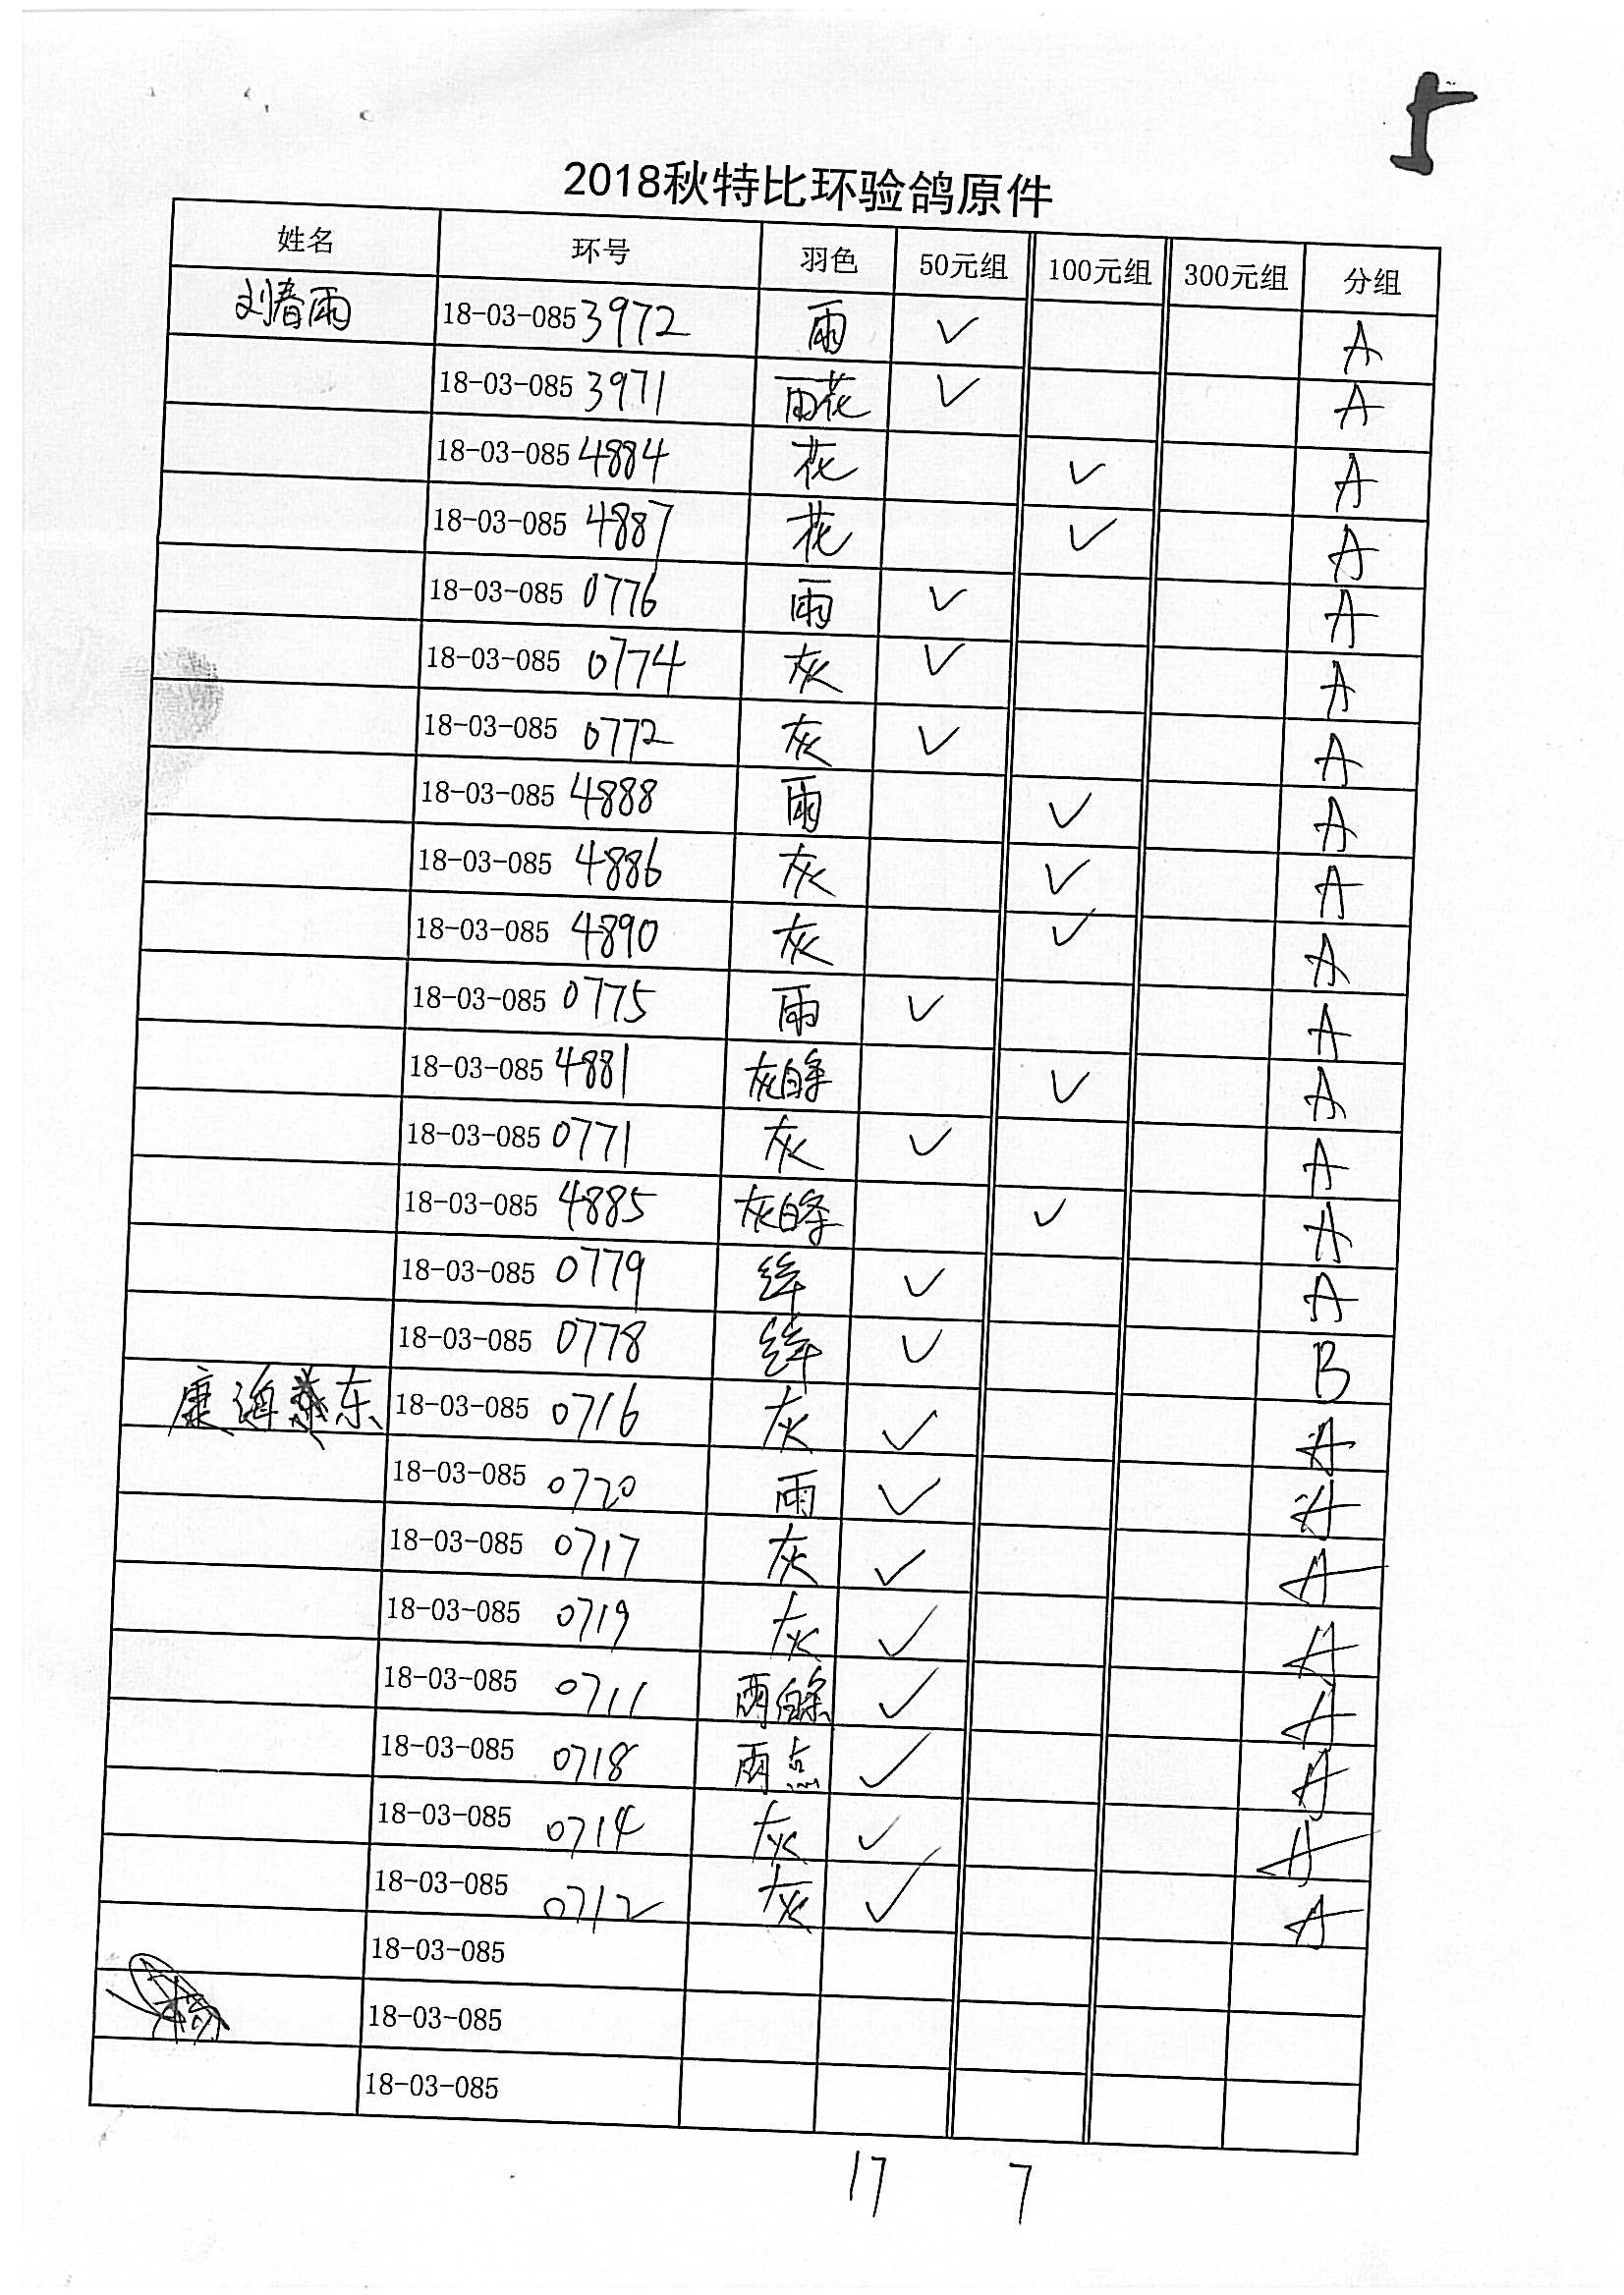 2018秋特比环验鸽原件
姓名 环号 羽色 50元组 100元组 300元组 分组
刘春雨 18-03-085 3972 雨 ✓ A
18-03-085 3971 雨花 ✓ A
18-03-085 4884 花 ✓ A
18-03-085 4887 花 ✓ A
18-03-085 0776 雨 ✓ A
18-03-085 0774 灰 ✓ A
18-03-085 0772 灰 ✓ A
18-03-085 4888 雨 ✓ A
18-03-085 4886 灰 ✓ A
18-03-085 4890 灰 ✓ A
18-03-085 0775 雨 ✓ A
18-03-085 4881 灰白条 ✓ A
18-03-085 0771 灰 ✓ A
18-03-085 4885 灰白条 ✓ A
18-03-085 0779 绛 ✓ A
18-03-085 0778 绛 ✓ B
康海东 18-03-085 0716 灰 ✓ A
18-03-085 0720 雨 ✓ A
18-03-085 0717 灰 ✓ A
18-03-085 0719 灰 ✓ A
18-03-085 0711 雨白条 ✓ A
18-03-085 0718 雨点 ✓ A
18-03-085 0714 灰 ✓ A
18-03-085 0712 灰 ✓ A
18-03-085
18-03-085
18-03-085
17 7